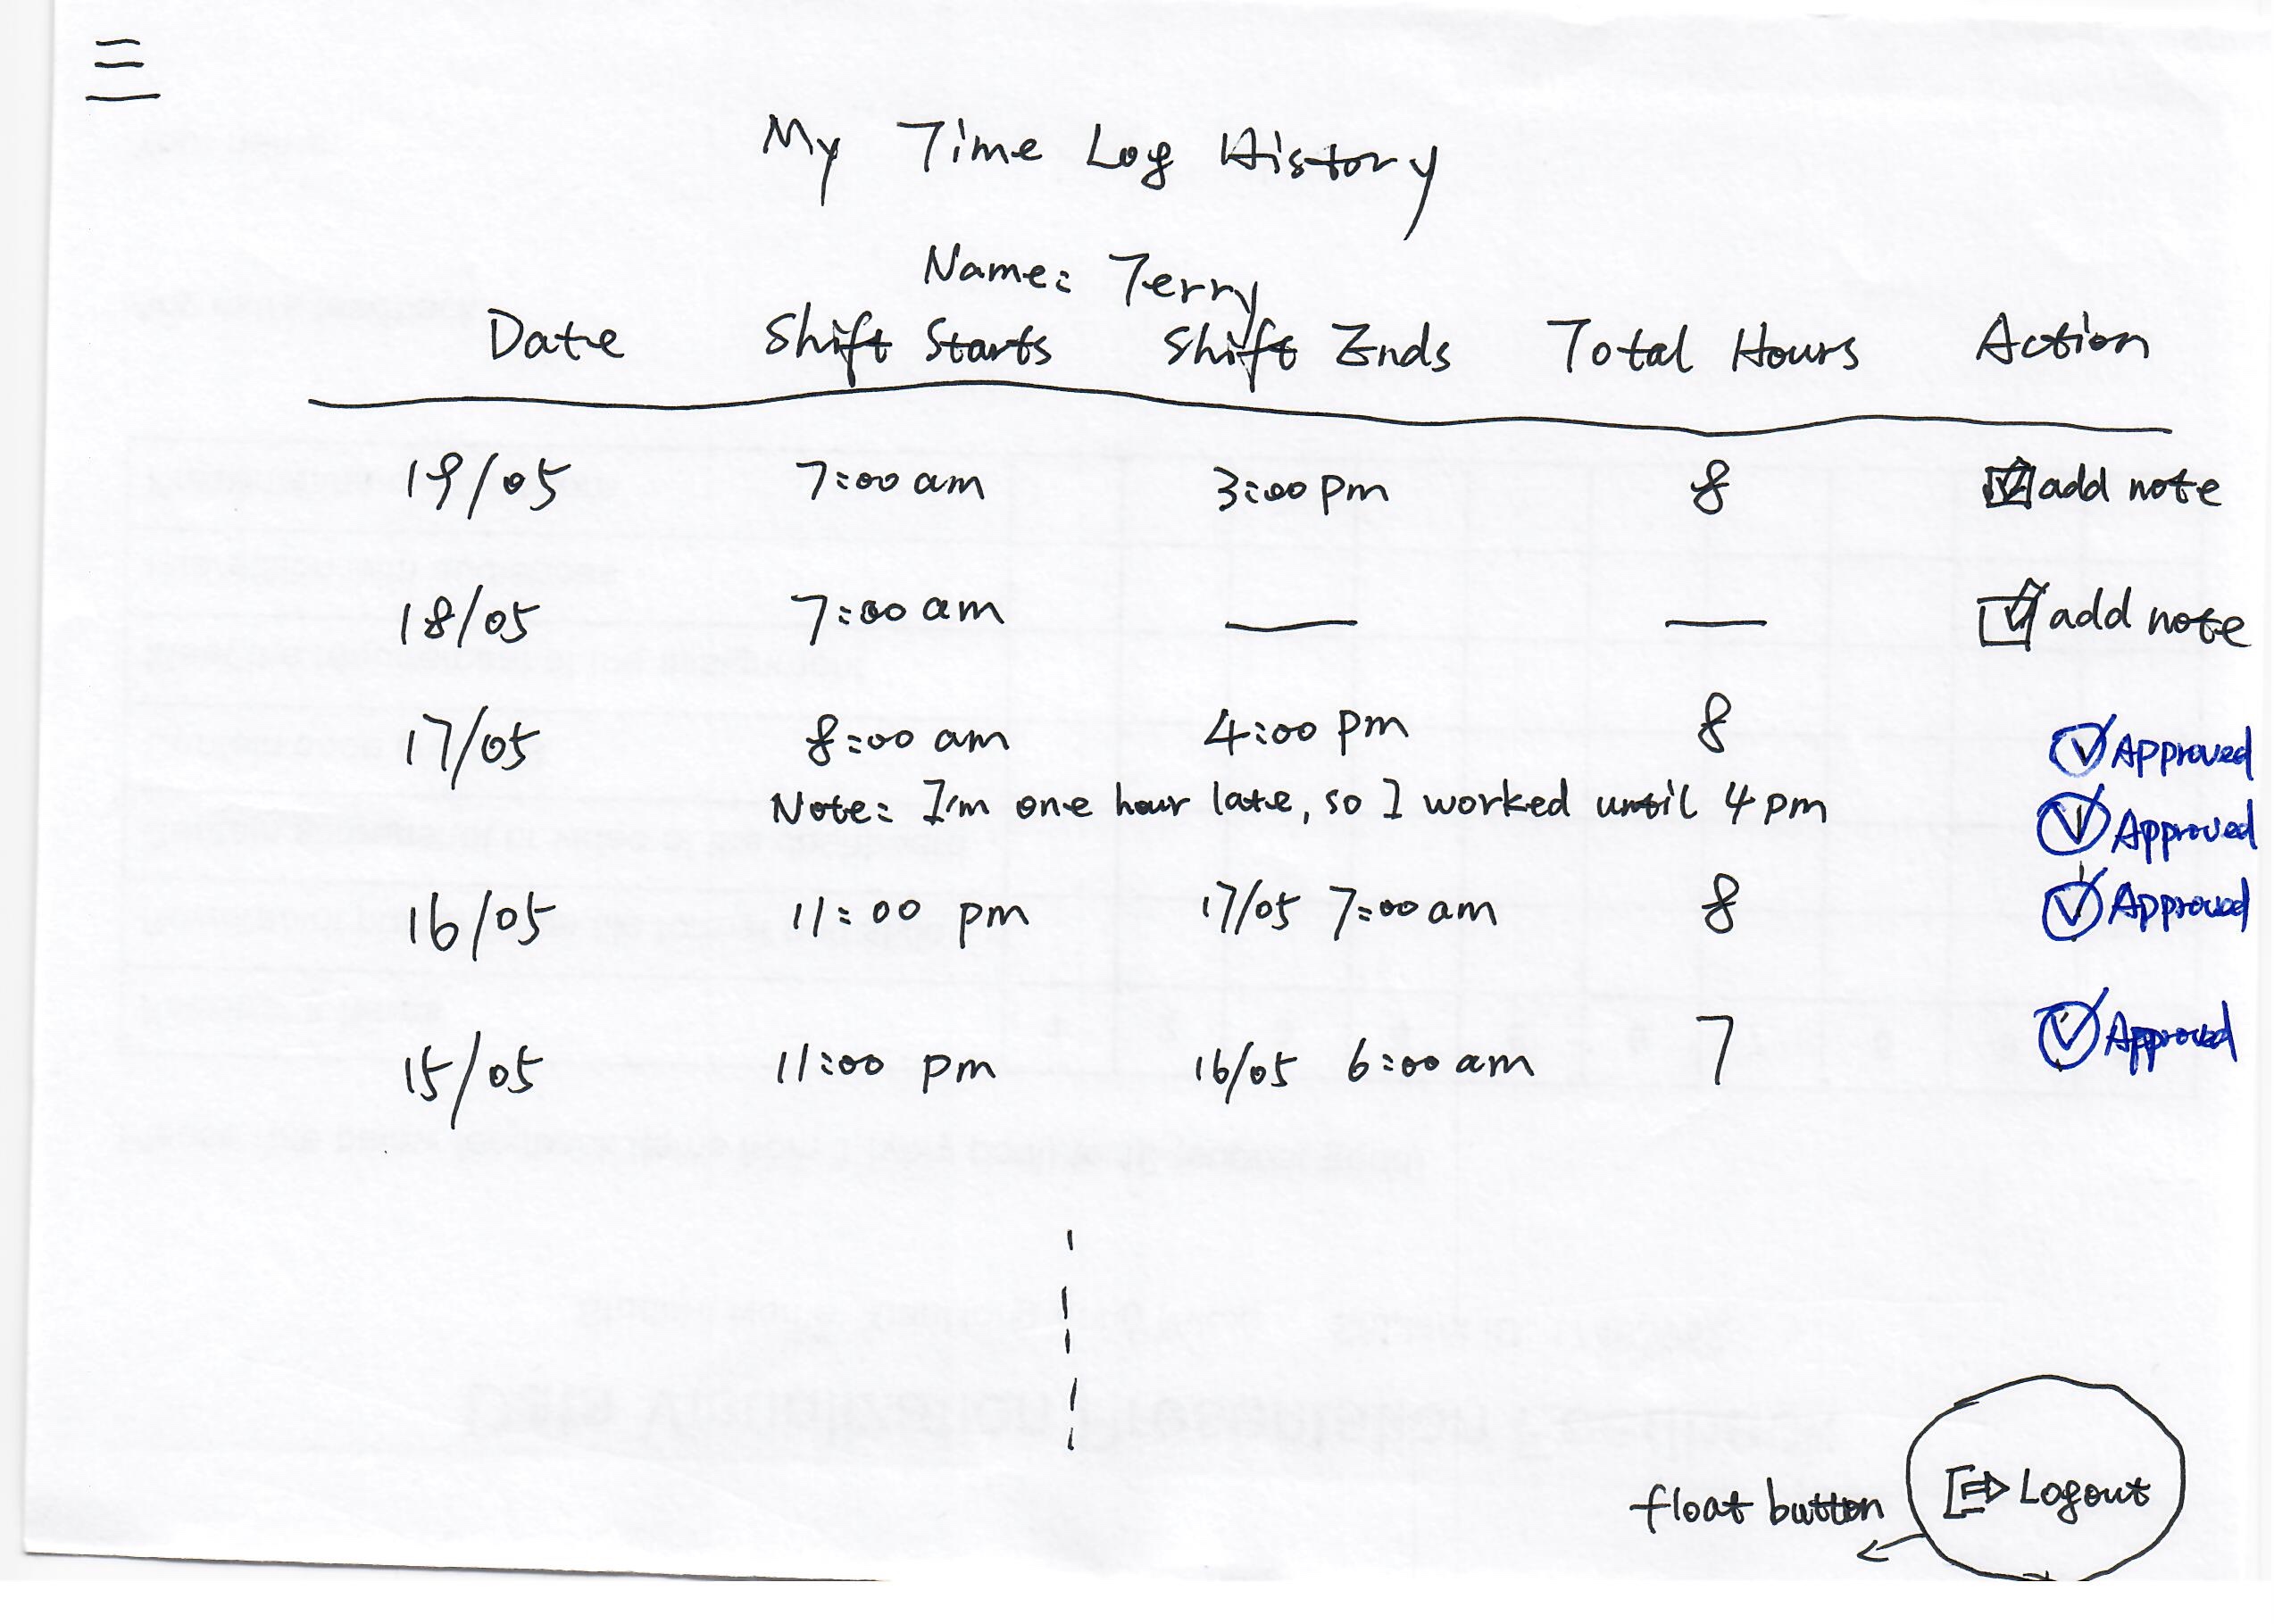 My Time Log History
Name: Terry
Date Shift Starts Shift Ends Total Hours Action
19/05 7:00 am 3:00 pm 8 add note
18/05 7:00 am — — add note
17/05 8:00 am 4:00 pm 8 Approved
Note: I'm one hour late, so I worked until 4 pm Approved
16/05 11:00 pm 17/05 7:00 am 8 Approved
15/05 11:00 pm 16/05 6:00 am 7 Approved
Logout
float button